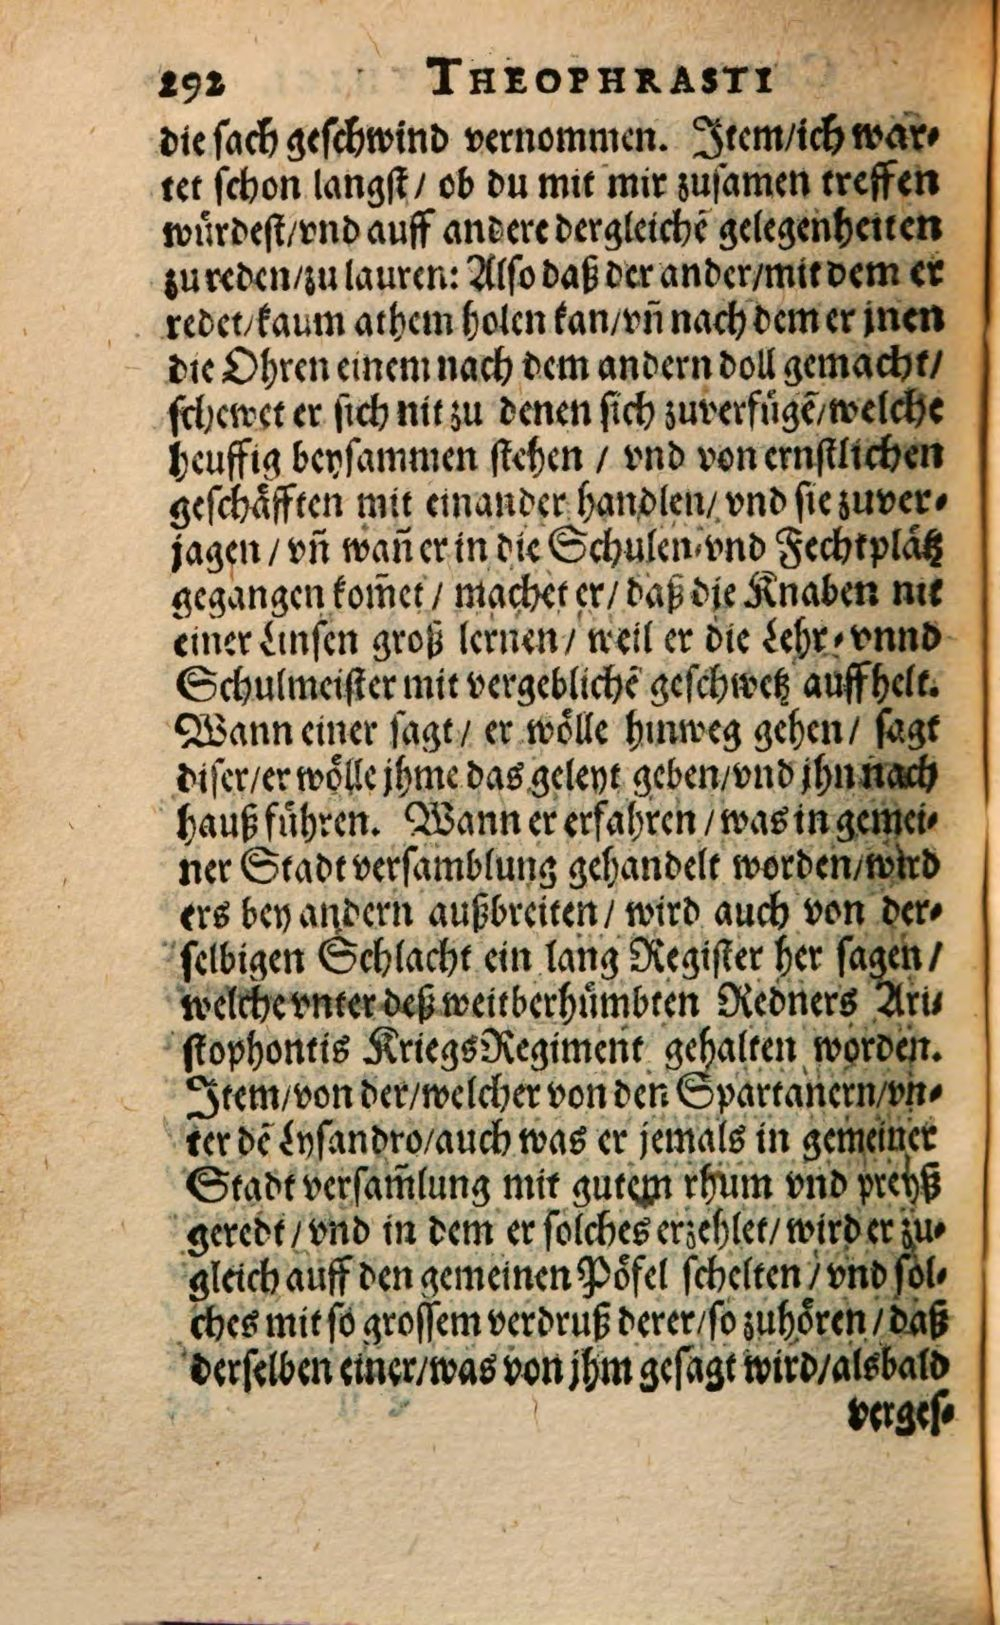 292 THEOPHRASTI
die sach geschwind vernommen. Item/ich war⸗
tet schon langst/ ob du mit mir zusamen treffen
wuͤrdest/vnd auff andere dergleichẽ gelegenheiten
zu reden/zu lauren: Also daß der ander/mit dem er
redet/kaum athem holen kan/vñ nach dem er jnen
die Ohren einem nach dem andern doll gemacht/
schewet er sich nit zu denen sich zuverfuͤgẽ/welche
heuffig beysammen stehen / vnd von ernstlichen
geschaͤfften mit einander handlen/ vnd sie zuver⸗
jagen / vñ wañ er in die Schulen⸗vnd Fechtplaͤtz
gegangen kom̃et / machet er/ daß die Knaben nit
einer Linsen groß lernen / weil er die Lehr⸗vnnd
Schulmeister mit vergeblichẽ geschwetz auffhelt.
Wann einer sagt/ er woͤlle hinweg gehen/ sagt
diser/er woͤlle jhme das geleyt geben/vnd jhn nach
hauß fuͤhren. Wann er erfahren / was in gemei⸗
ner Stadt versamblung gehandelt worden/wird
ers bey andern außbreiten / wird auch von der⸗
selbigen Schlacht ein lang Register her sagen /
welche vnter deß weitberhuͤmbten Redners Ari⸗
stophontis KriegsRegiment gehalten worden.
Item/von der/welcher von den Spartanern/vn⸗
ter dẽ Lysandro/auch was er jemals in gemeiner
Stadt versam̃lung mit gutem rhum vnd preyß
geredt / vnd in dem er solches erzehlet/ wird er zu⸗
gleich auff den gemeinen Poͤfel schelten / vnd sol⸗
ches mit so grossem verdruß derer/so zuhoͤren / daß
derselben einer/was von jhm gesagt wird/alsbald
verges⸗